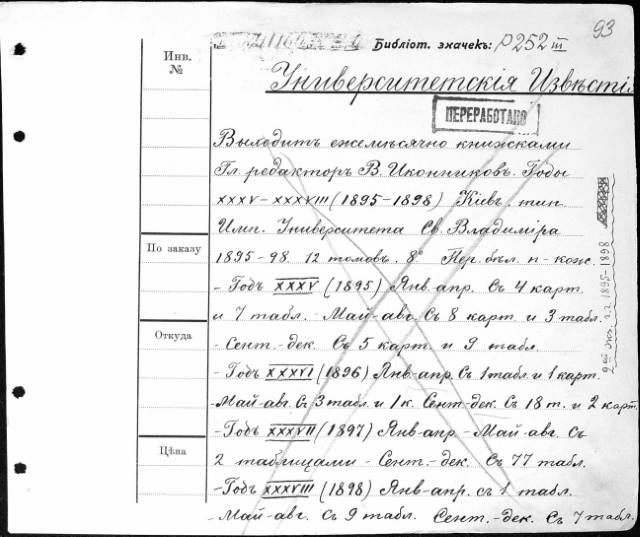 93
Библіот. значекъ: р 252 III
Инв. №
Университетскія Извѣстія
ПЕРЕРАБОТАНО
Выходитъ ежемѣсячно книжками
Гл. редакторъ В. Иконниковъ. Годы
XXXV-XXXVIII (1895-1898) Кіевъ. тип.
Имп. Университета Св. Владиміра
По заказу
1895-98. 12 томовъ. 8° Пер. бѣл. п-кож.
- Годъ XXXV (1895) Янв.-апр. Съ 4 карт.
и 7 табл. Май-авг. Съ 8 карт и 3 табл.
Откуда
- Сент.-дек. Съ 5 карт. и 9 табл.
- Годъ XXXVI (1896) Янв-апр. Съ 1 табл и 1 карт.
- Май-авг. Съ 3 табл. и 1 к. Сент.-дек. Съ 18 т. и 2 карт.
- Годъ XXXVII (1897) Янв-апр. - Май-авг. Съ
Цѣна
2 таблицами - Сент.-дек. Съ 77 табл.
- Годъ XXXVIII (1898) Янв-апр. съ 1 табл.
- Май-авг. съ 9 табл. Сент.-дек. Съ 7 табл.
2ой экз. г.г. 1895-1898